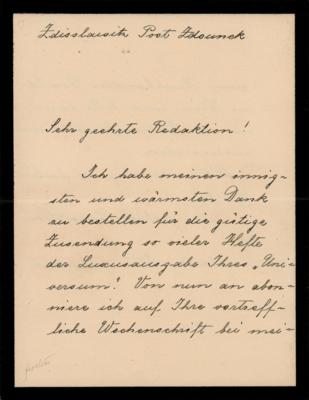 Zdisslawitz Post Zdounek
Sehr geehrte Redaktion!
Ich habe meinen innig-
sten und wärmsten Dank
zu bestellen für die gütige
Zusendung so vieler Hefte
der Luxusausgabe Ihres „Uni-
versum! Von nun an abon-
niere ich auf Ihre vortreff-
liche Wochenschrift bei mei-